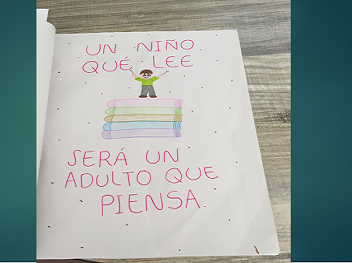 UN NIÑO
QUÉ LEE
SERÁ UN
ADULTO QUE
PIENSA.